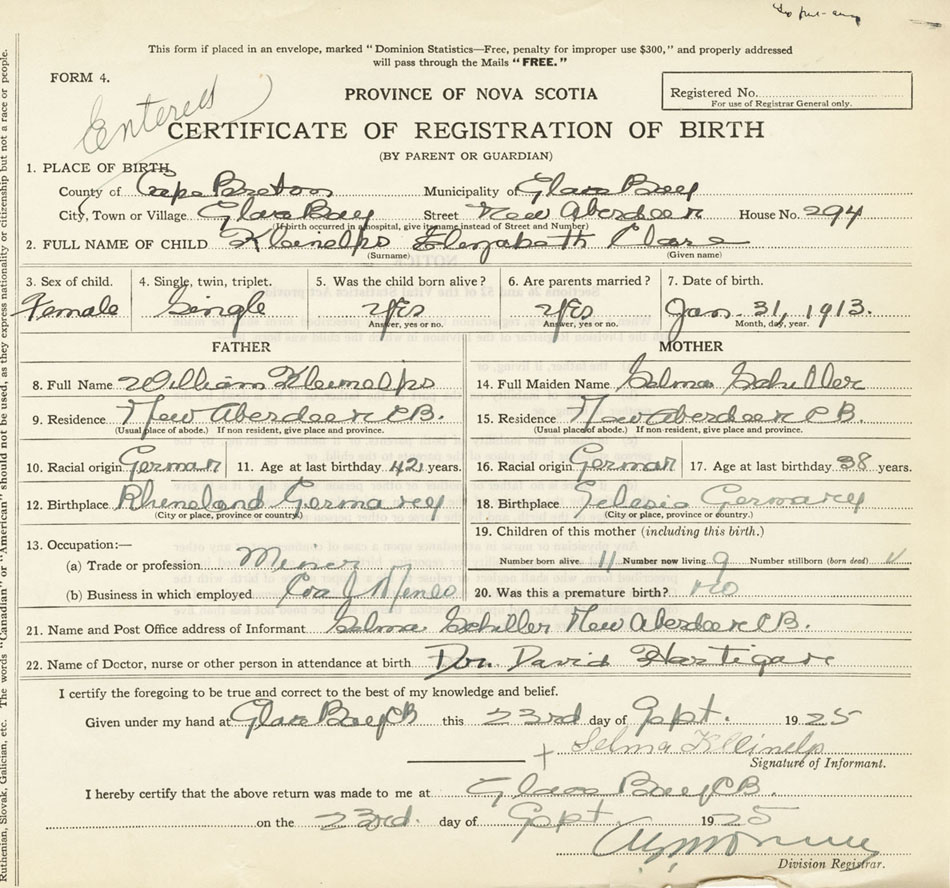 This form if placed in an envelope, marked "Dominion Statistics—Free, penalty for improper use $300," and properly addressed
will pass through the Mails "FREE."
FORM 4.
Registered No.
For use of Registrar General only.
PROVINCE OF NOVA SCOTIA
Entered
CERTIFICATE OF REGISTRATION OF BIRTH
(BY PARENT OR GUARDIAN)
1. PLACE OF BIRTH
County of Cape Breton Municipality of Glace Bay
City, Town or Village Glace Bay Street New Aberdeen House No. 294
(If birth occurred in a hospital, give its name instead of Street and Number)
2. FULL NAME OF CHILD Kleinelps Elizabeth Clare
(Surname) (Given name)
3. Sex of child. 4. Single, twin, triplet. 5. Was the child born alive? 6. Are parents married? 7. Date of birth.
Female Single Yes Yes Jan. 31, 1913.
Answer, yes or no. Answer, yes or no. Month, day, year.
FATHER MOTHER
8. Full Name William Kleinelps 14. Full Maiden Name Selma Schiller
9. Residence New Aberdeen C.B. 15. Residence New Aberdeen C B.
(Usual place of abode.) If non resident, give place and province. (Usual place of abode.) If non-resident, give place and province.
10. Racial origin German 11. Age at last birthday 42 years. 16. Racial origin German 17. Age at last birthday 38 years.
12. Birthplace Rhineland Germany 18. Birthplace Germany
(City or place, province or country.) (City or place, province or country.)
13. Occupation:— 19. Children of this mother (including this birth.)
(a) Trade or profession Miner Number born alive 11 Number now living 9 Number stillborn (born dead)
(b) Business in which employed Coal Mines 20. Was this a premature birth? No
21. Name and Post Office address of Informant Selma Schiller New Aberdeen C B.
22. Name of Doctor, nurse or other person in attendance at birth Dr. David Hartigan
I certify the foregoing to be true and correct to the best of my knowledge and belief.
Given under my hand at Glace Bay CB this 23rd day of Sept. 1925
Selma
Signature of Informant.
I hereby certify that the above return was made to me at Glace Bay CB.
on the 23rd. day of Sept 1925
Division Registrar.
Ruthenian, Slovak, Galician, etc. The words "Canadian" or "American" should not be used, as they express nationality or citizenship but not a race or people.